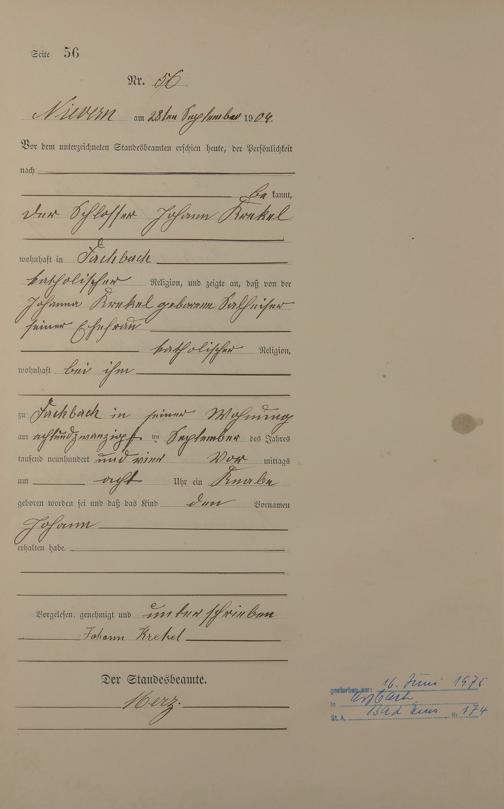 Seite 56
Nr. 56
Nievern am 28ten September 1904.
Vor dem unterzeichneten Standesbeamten erschien heute, der Persönlichkeit
nach
be kannt,
der Schlosser Johann Krekel
wohnhaft in Fachbach
katholischer Religion, und zeigte an, daß von der
Johanna Krekel geborenen Salheiser
seiner Ehefrau
katholischer Religion,
wohnhaft bei ihm
zu Fachbach in seiner Wohnung
am achtundzwanzigst en September des Jahres
tausend neunhundert und vier Vor mittags
um acht Uhr ein Knabe
geboren worden sei und daß das Kind den Vornamen
Johann
erhalten habe.
Vorgelesen, genehmigt und unterschrieben
Johann Krekel
Der Standesbeamte.
Merz.
gestorben am: 16. Juni 1975
in
St. A. Bad Ems Nr. 174